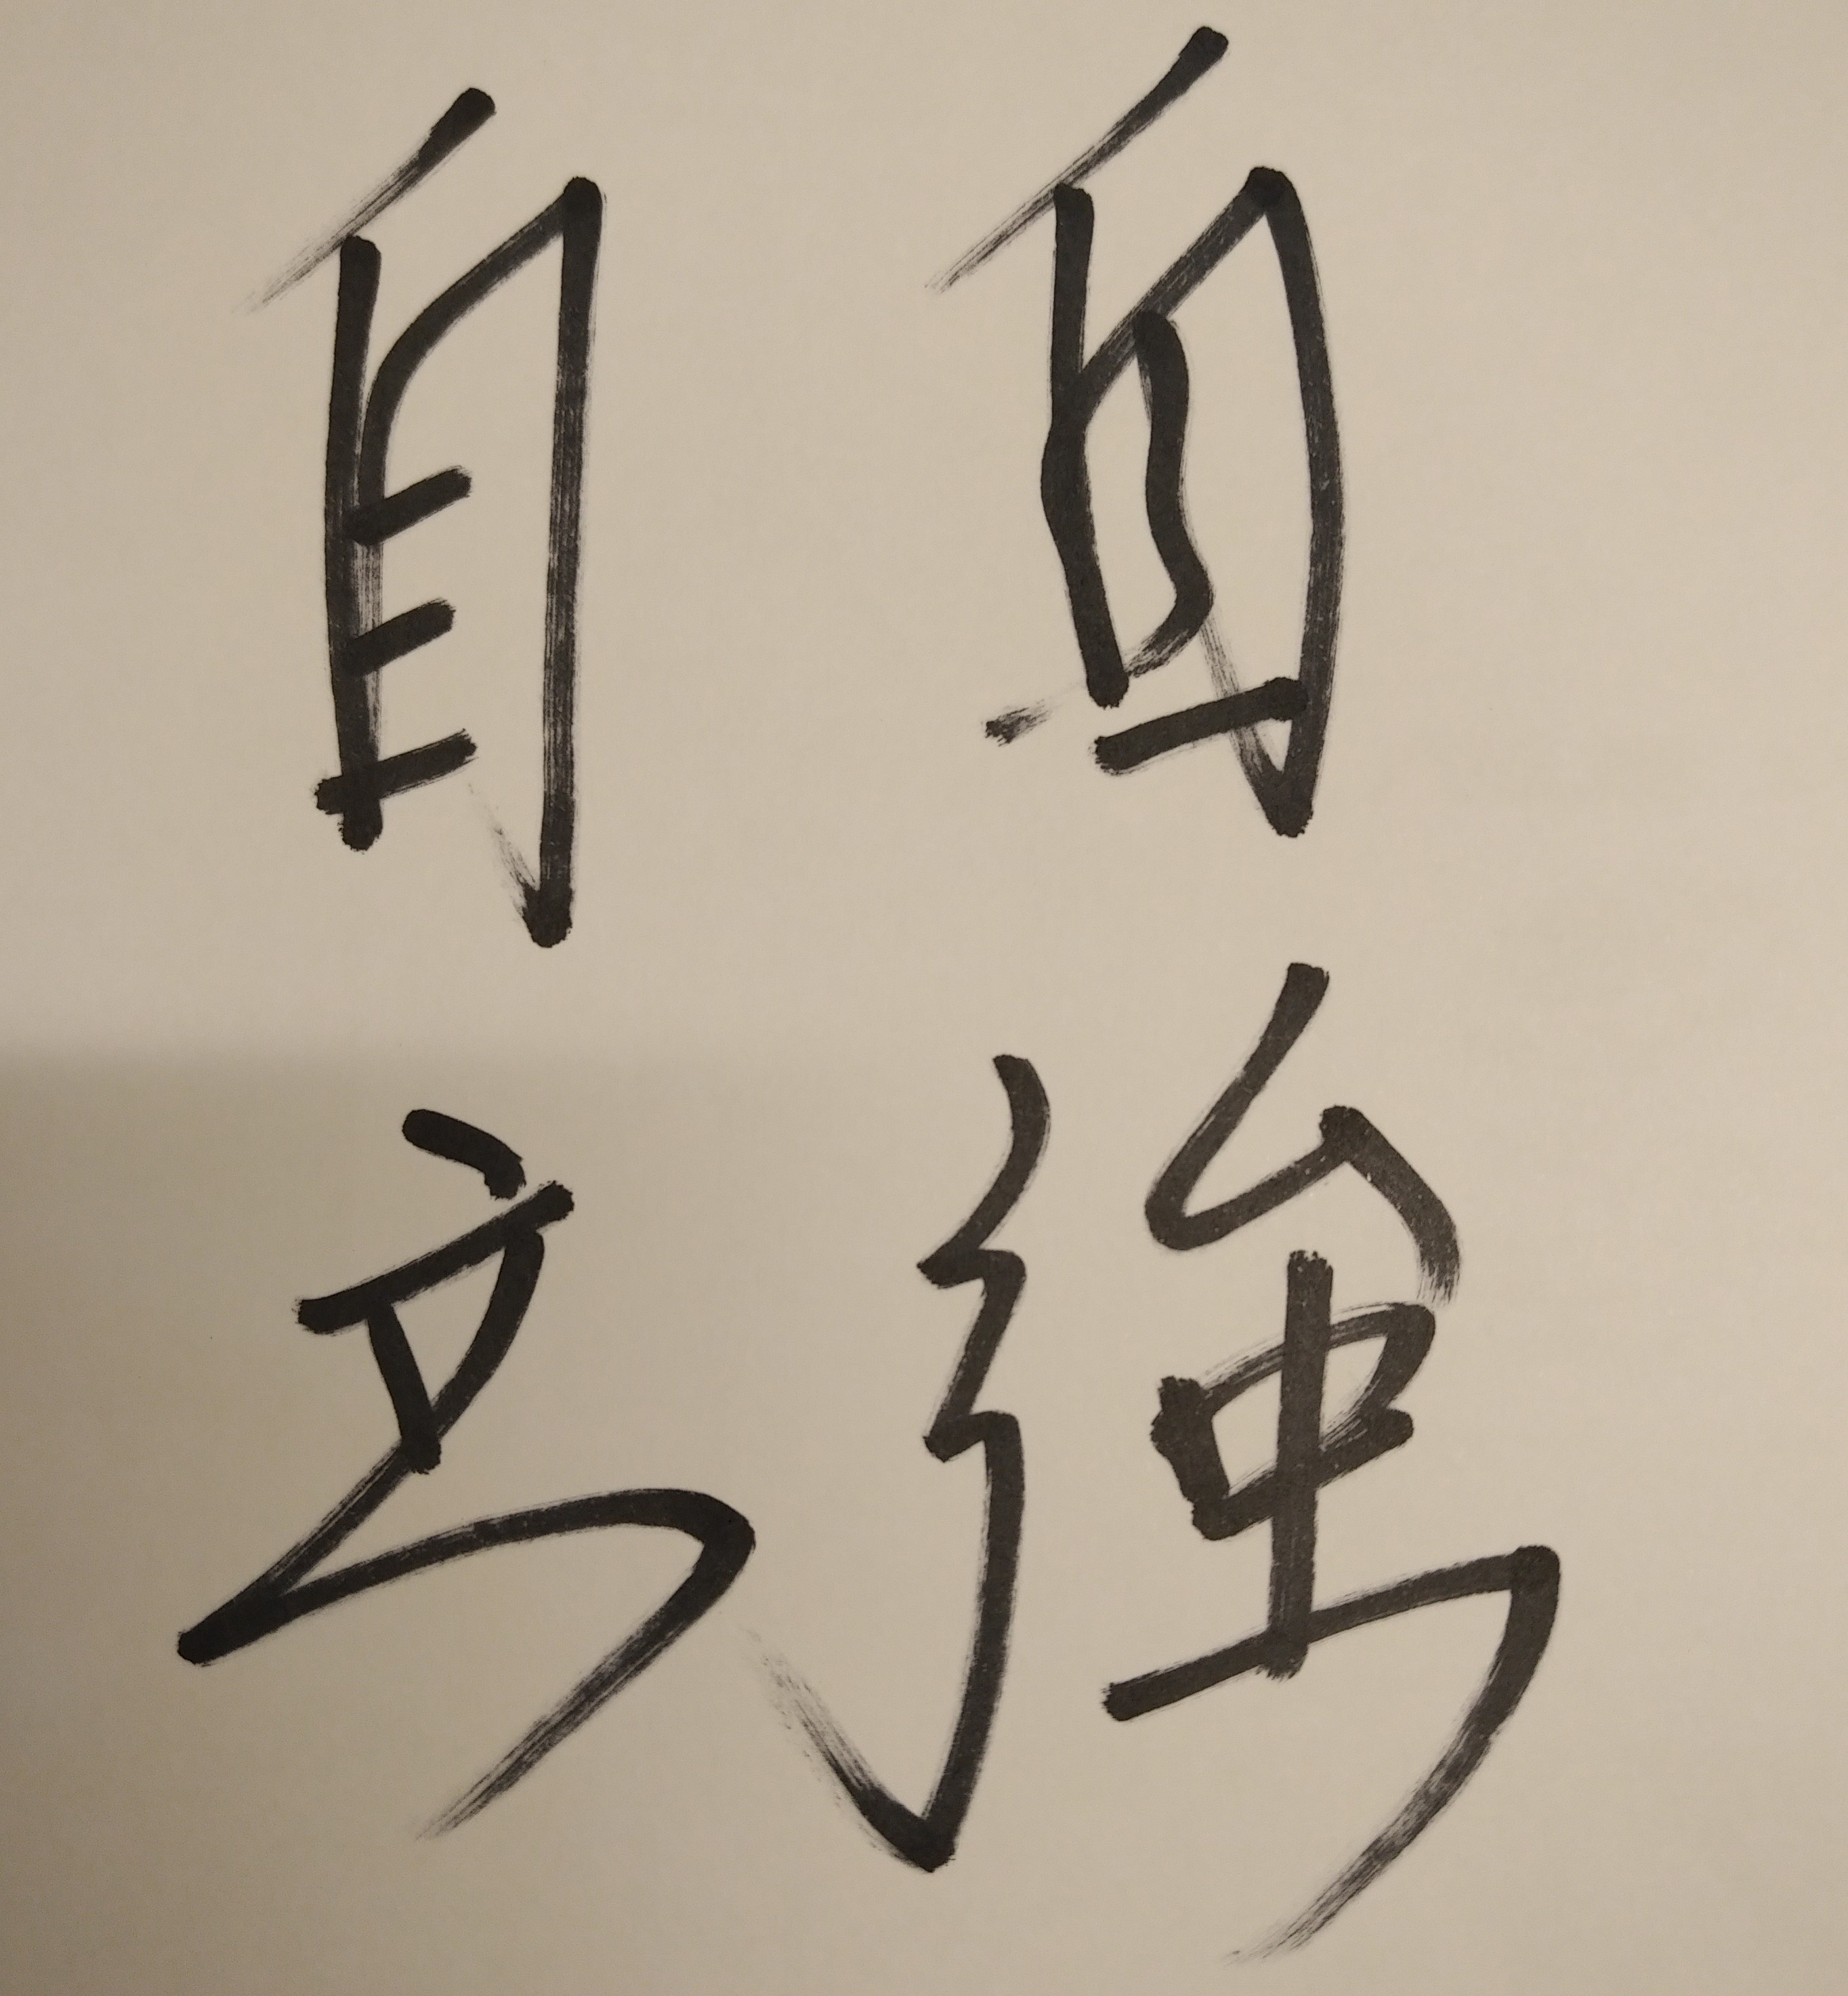 自強
自立